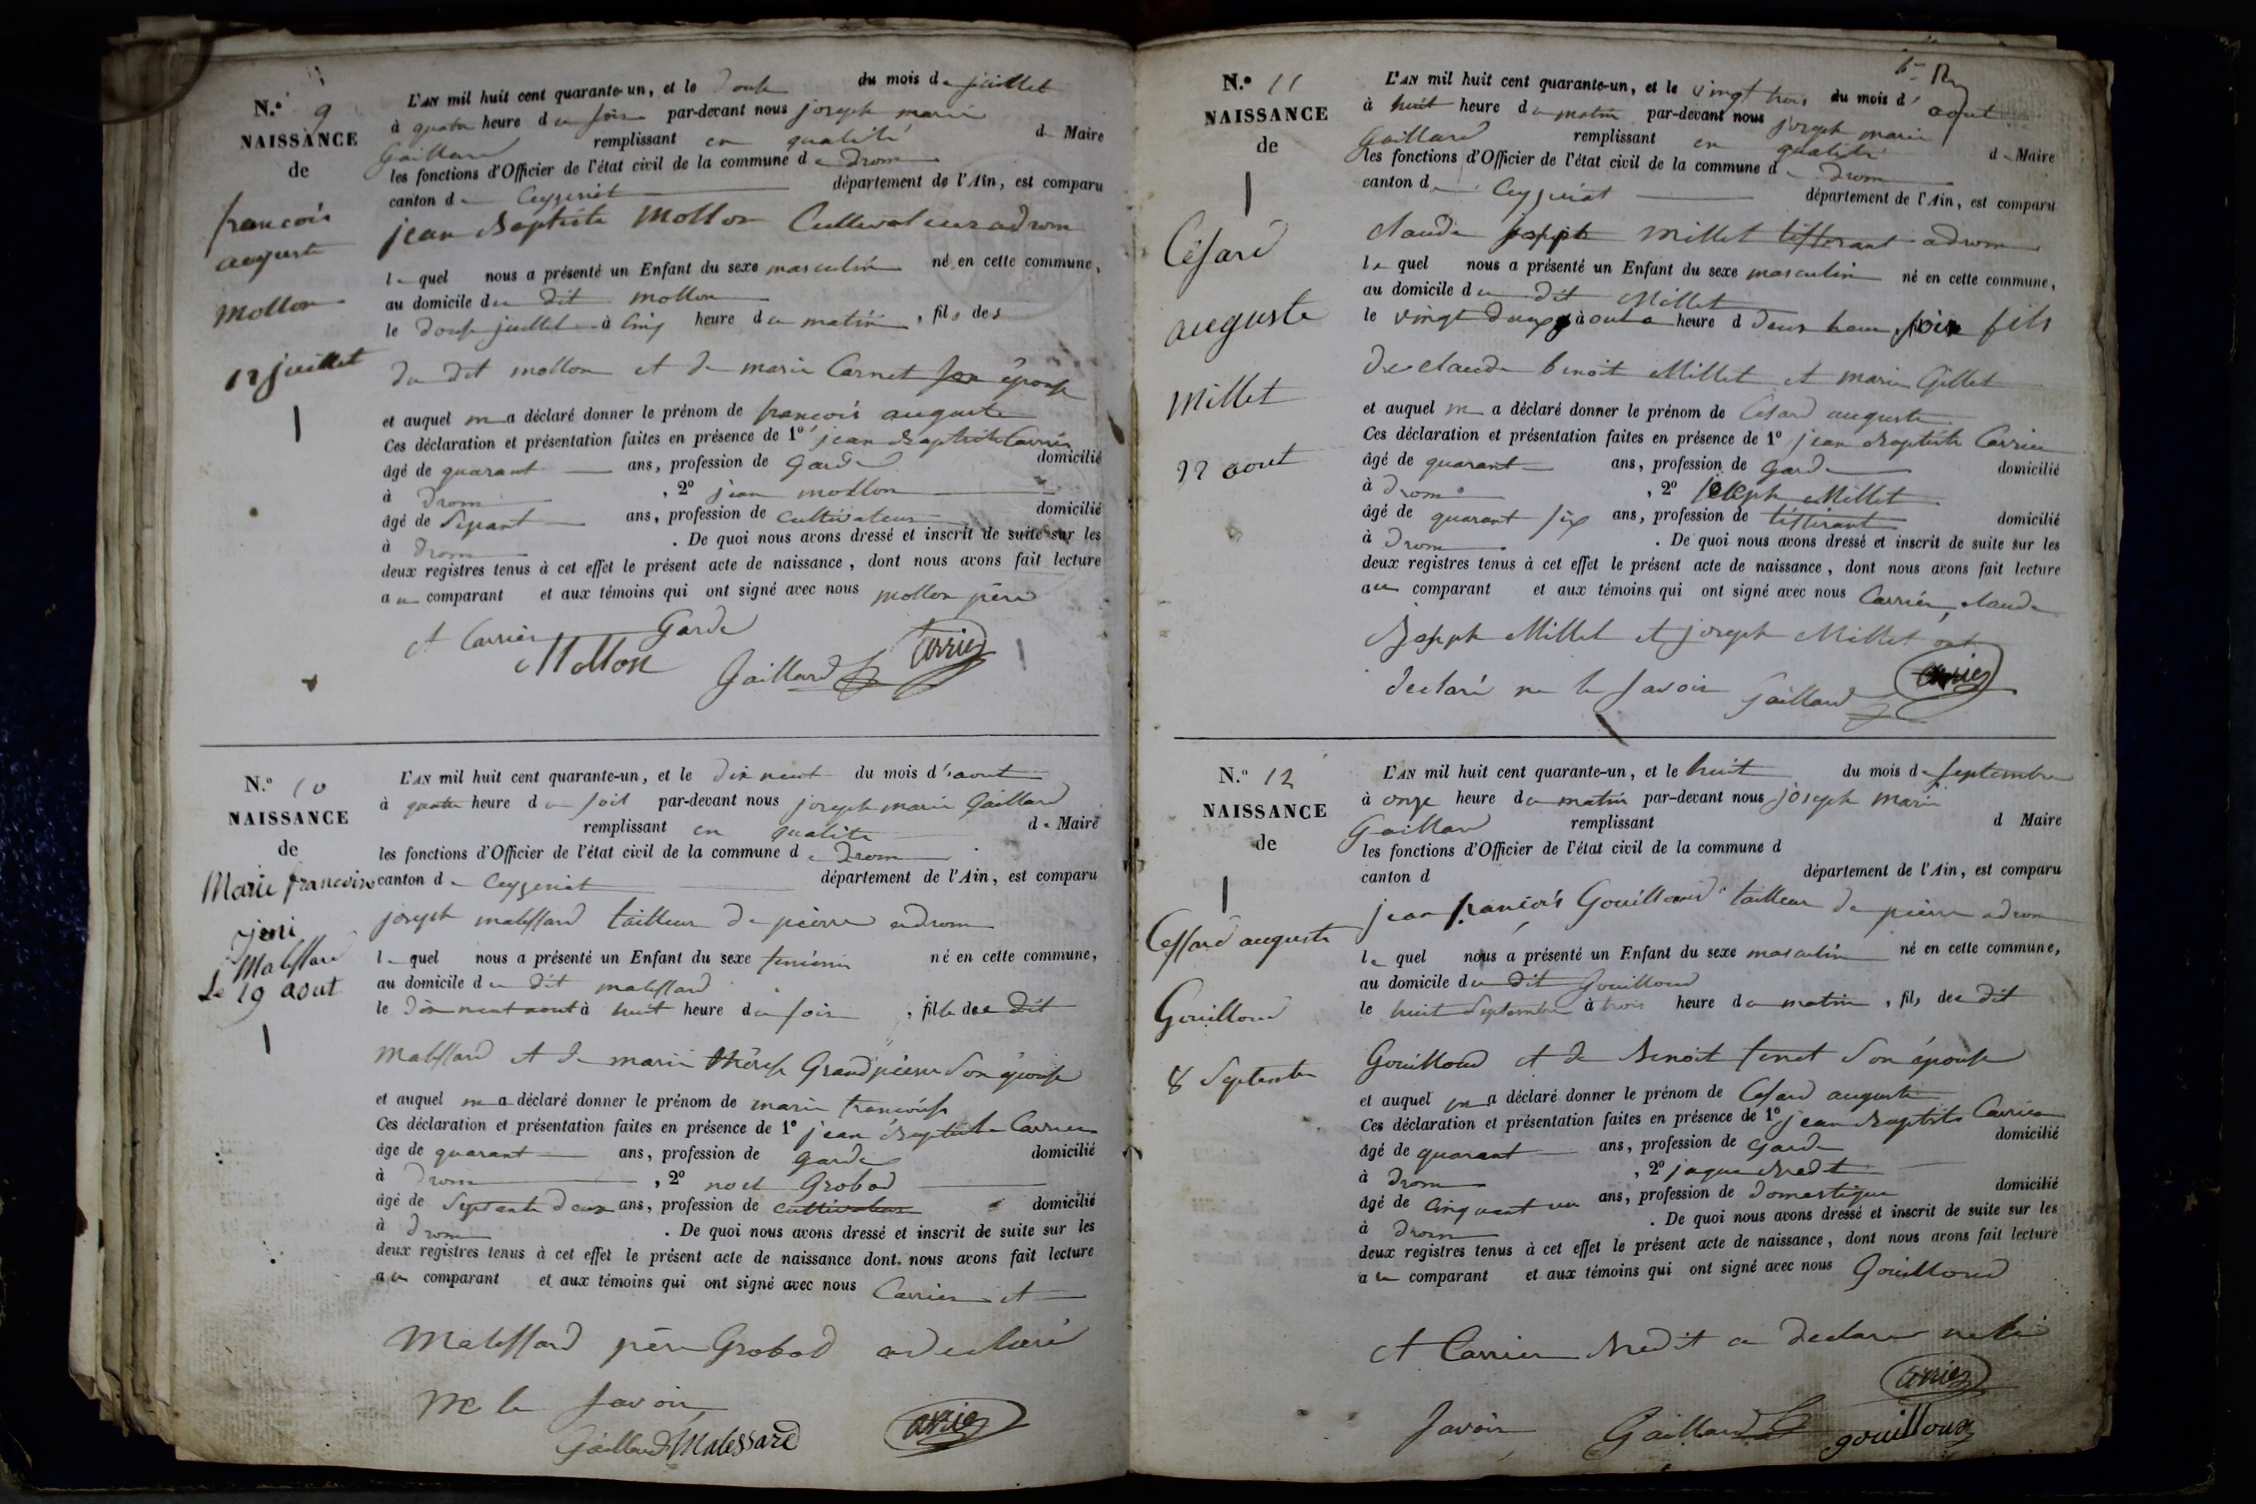 N.o 9
NAISSANCE
de
françois
auguste
mollon
12 juillet
L'AN mil huit cent quarante-un, et le douse du mois de juillet
à quatre heure du soir par-devant nous joseph marie
Gaillard remplissant en qualité de Maire
les fonctions d'Officier de l'état civil de la commune de Drom
canton de Ceyzeriat département de l'Ain, est comparu
jean Baptiste mollon Cultivateur a drom
le quel nous a présenté un Enfant du sexe masculin né en cette commune,
au domicile du dit mollon
le douse juillet à cinq heure du matin, fils des
du dit mollon et de marie Carnet son épouse
et auquel on a déclaré donner le prénom de françois auguste
Ces déclaration et présentation faites en présence de 1o jean Baptiste Carrier
âgé de quarant ans, profession de Garde domicilié
à Drom, 2o jean mollon
âgé de Sepant ans, profession de cultivateur domicilié
à Drom. De quoi nous avons dressé et inscrit de suite sur les
deux registres tenus à cet effet le présent acte de naissance, dont nous avons fait lecture
au comparant et aux témoins qui ont signé avec nous mollon père
et Carrier Garde
Mollon Gaillard Carrier
N.o 10
NAISSANCE
de
Marie francoise
jeni
Malessard
Le 19 aout
L'AN mil huit cent quarante-un, et le dix neuf du mois d'aout
à quatre heure du soir par-devant nous joseph marie Gaillard
remplissant en qualite de Maire
les fonctions d'Officier de l'état civil de la commune de Drom
canton de Ceyzeriat département de l'Ain, est comparu
joseph malessard tailleur de pierre a drom
le quel nous a présenté un Enfant du sexe feminin né en cette commune,
au domicile du dit malessard
le dix neuf aout à huit heure du soir, fille de dit
Malessard et de marie thérese Grandpierre son épouse
et auquel on a déclaré donner le prénom de marie francoise
Ces déclaration et présentation faites en présence de 1o jean Baptiste Carrier
âge de quarant ans, profession de garde domicilié
à Drom, 2o noel Grobod
âgé de Septante deux ans, profession de cultivateur domicilié
à Drom. De quoi nous avons dressé et inscrit de suite sur les
deux registres tenus à cet effet le présent acte de naissance dont nous avons fait lecture
au comparant et aux témoins qui ont signé avec nous Carrier et
Malessard père Grobod a declaré
ne le savoir
Gaillard Malessard Carrier
N.o 11
NAISSANCE
de
Césard
auguste
Millet
22 aout
L'AN mil huit cent quarante-un, et le vingt trois du mois d'aout
à huit heure du matin par-devant nous joseph marie
Gaillard remplissant en qualité de Maire
les fonctions d'Officier de l'état civil de la commune de Drom
canton de Ceyzeriat département de l'Ain, est comparu
claude joseph millet tisserant a drom
le quel nous a présenté un Enfant du sexe masculin né en cette commune,
au domicile du dit Millet
le vingt deux aout à heure d deux heure soir fils
de claude benoit Millet et marie Gillet
et auquel on a déclaré donner le prénom de Cesard auguste
Ces déclaration et présentation faites en présence de 1o jean Baptiste Carrier
âgé de quarant ans, profession de Garde domicilié
à Drom, 2o joseph Millet
âgé de quarant six ans, profession de tisserant domicilié
à Drom. De quoi nous avons dressé et inscrit de suite sur les
deux registres tenus à cet effet le présent acte de naissance, dont nous avons fait lecture
au comparant et aux témoins qui ont signé avec nous Carrier, claude
joseph Millet et joseph Millet ont
declaré ne le savoir Gaillard Carrier
N.o 12
NAISSANCE
de
Cessard auguste
Gouilloud
8 Septembre
L'AN mil huit cent quarante-un, et le huit du mois de septembre
à onze heure du matin par-devant nous joseph marie
Gaillard remplissant d Maire
les fonctions d'Officier de l'état civil de la commune d
canton d département de l'Ain, est comparu
jean françois Gouilloud tailleur de pierre a drom
le quel nous a présenté un Enfant du sexe masculin né en cette commune,
au domicile du dit Gouilloud
le huit Septembre à trois heure du matin, fils de dit
Gouilloud et de Benoit fenet son épouse
et auquel on a déclaré donner le prénom de Cesard auguste
Ces déclaration et présentation faites en présence de 1o jean Baptiste Carrier
âgé de quarant ans, profession de Garde domicilié
à Drom, 2o jaque Bredit
âgé de Cinquant un ans, profession de Domestique domicilié
à Drom. De quoi nous avons dressé et inscrit de suite sur les
deux registres tenus à cet effet le présent acte de naissance, dont nous avons fait lecture
au comparant et aux témoins qui ont signé avec nous Gouilloud
et Carrier Bredit a declare ne le
savoir Gaillard Carrier
gouilloud